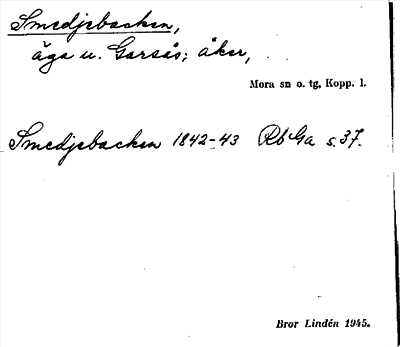 Smedjebacken,
äga u. Garsås; åker,
Mora sn o. tg, Kopp. l.
Smedjebacken 1842-43 RbGa s. 37.
Bror Lindén 1945.